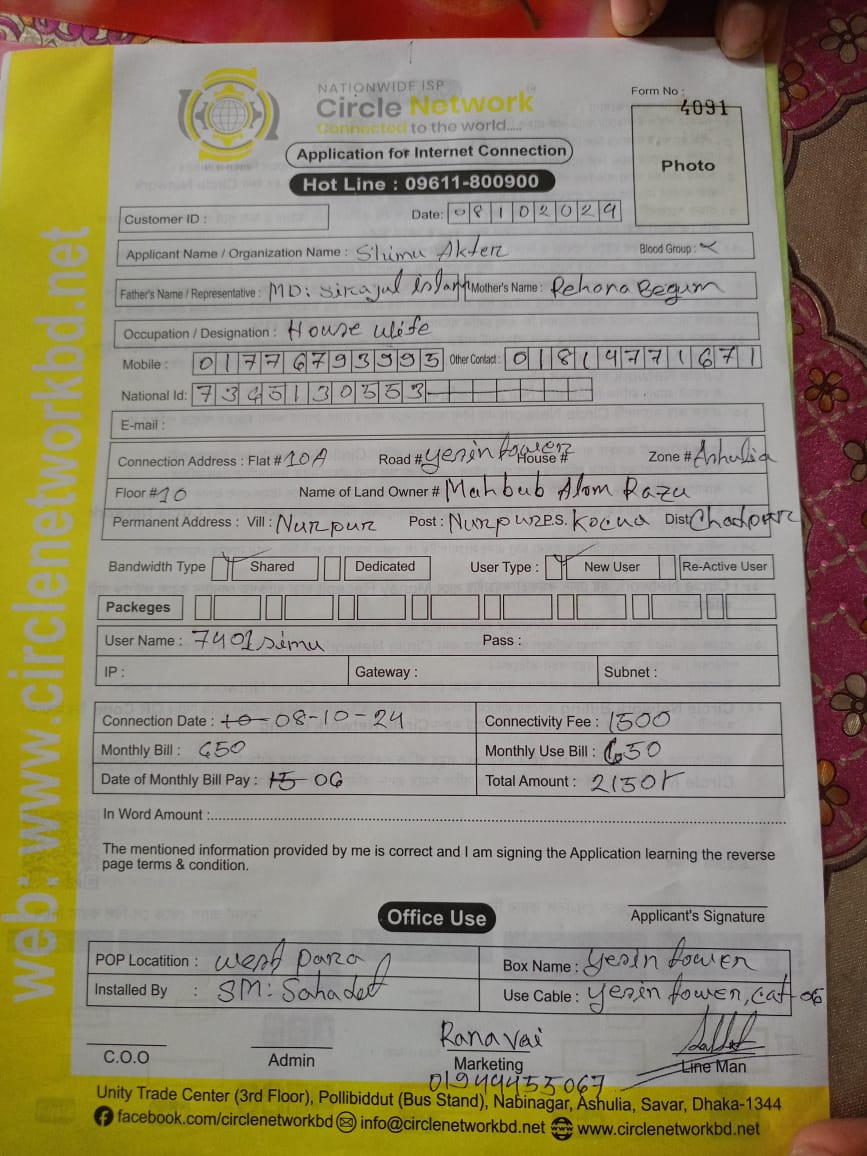 NATIONWIDE ISP
Circle Network
Connected to the world.....
Application for Internet Connection
Hot Line : 09611-800900
Form No :
4091
Photo
Customer ID :
Date: 08102024
Applicant Name / Organization Name : Shimu Akter Blood Group :
Father's Name / Representative : MD: Sirajul islam Mother's Name : Rehona Begum
Occupation / Designation : House wife
Mobile : 01776793993 Other Contact : 01814771671
National Id: 7345130553
E-mail :
Connection Address : Flat # 10A Road # yesin tower House # Zone # Ashulia
Floor # 10 Name of Land Owner # Mahbub Alom Razu
Permanent Address : Vill : Nurpur Post : Nurpur P.S. Kocua Dist Chadpur
Bandwidth Type Shared Dedicated User Type : New User Re-Active User
Packeges
User Name : 7401simu Pass :
IP : Gateway : Subnet :
Connection Date : 10 08-10-24 Connectivity Fee : 1500
Monthly Bill : 650 Monthly Use Bill : 650
Date of Monthly Bill Pay : 15 06 Total Amount : 2150
In Word Amount :
The mentioned information provided by me is correct and I am signing the Application learning the reverse
page terms & condition.
Applicant's Signature
Office Use
POP Locatition : west para Box Name : yesin tower
Installed By : SM: Sahadet Use Cable : yesin tower, cat-06
C.O.O
Admin
Rana vai
Marketing
01944453067
Line Man
Unity Trade Center (3rd Floor), Pollibiddut (Bus Stand), Nabinagar, Ashulia, Savar, Dhaka-1344
facebook.com/circlenetworkbd info@circlenetworkbd.net www.circlenetworkbd.net
web: www.circlenetworkbd.net